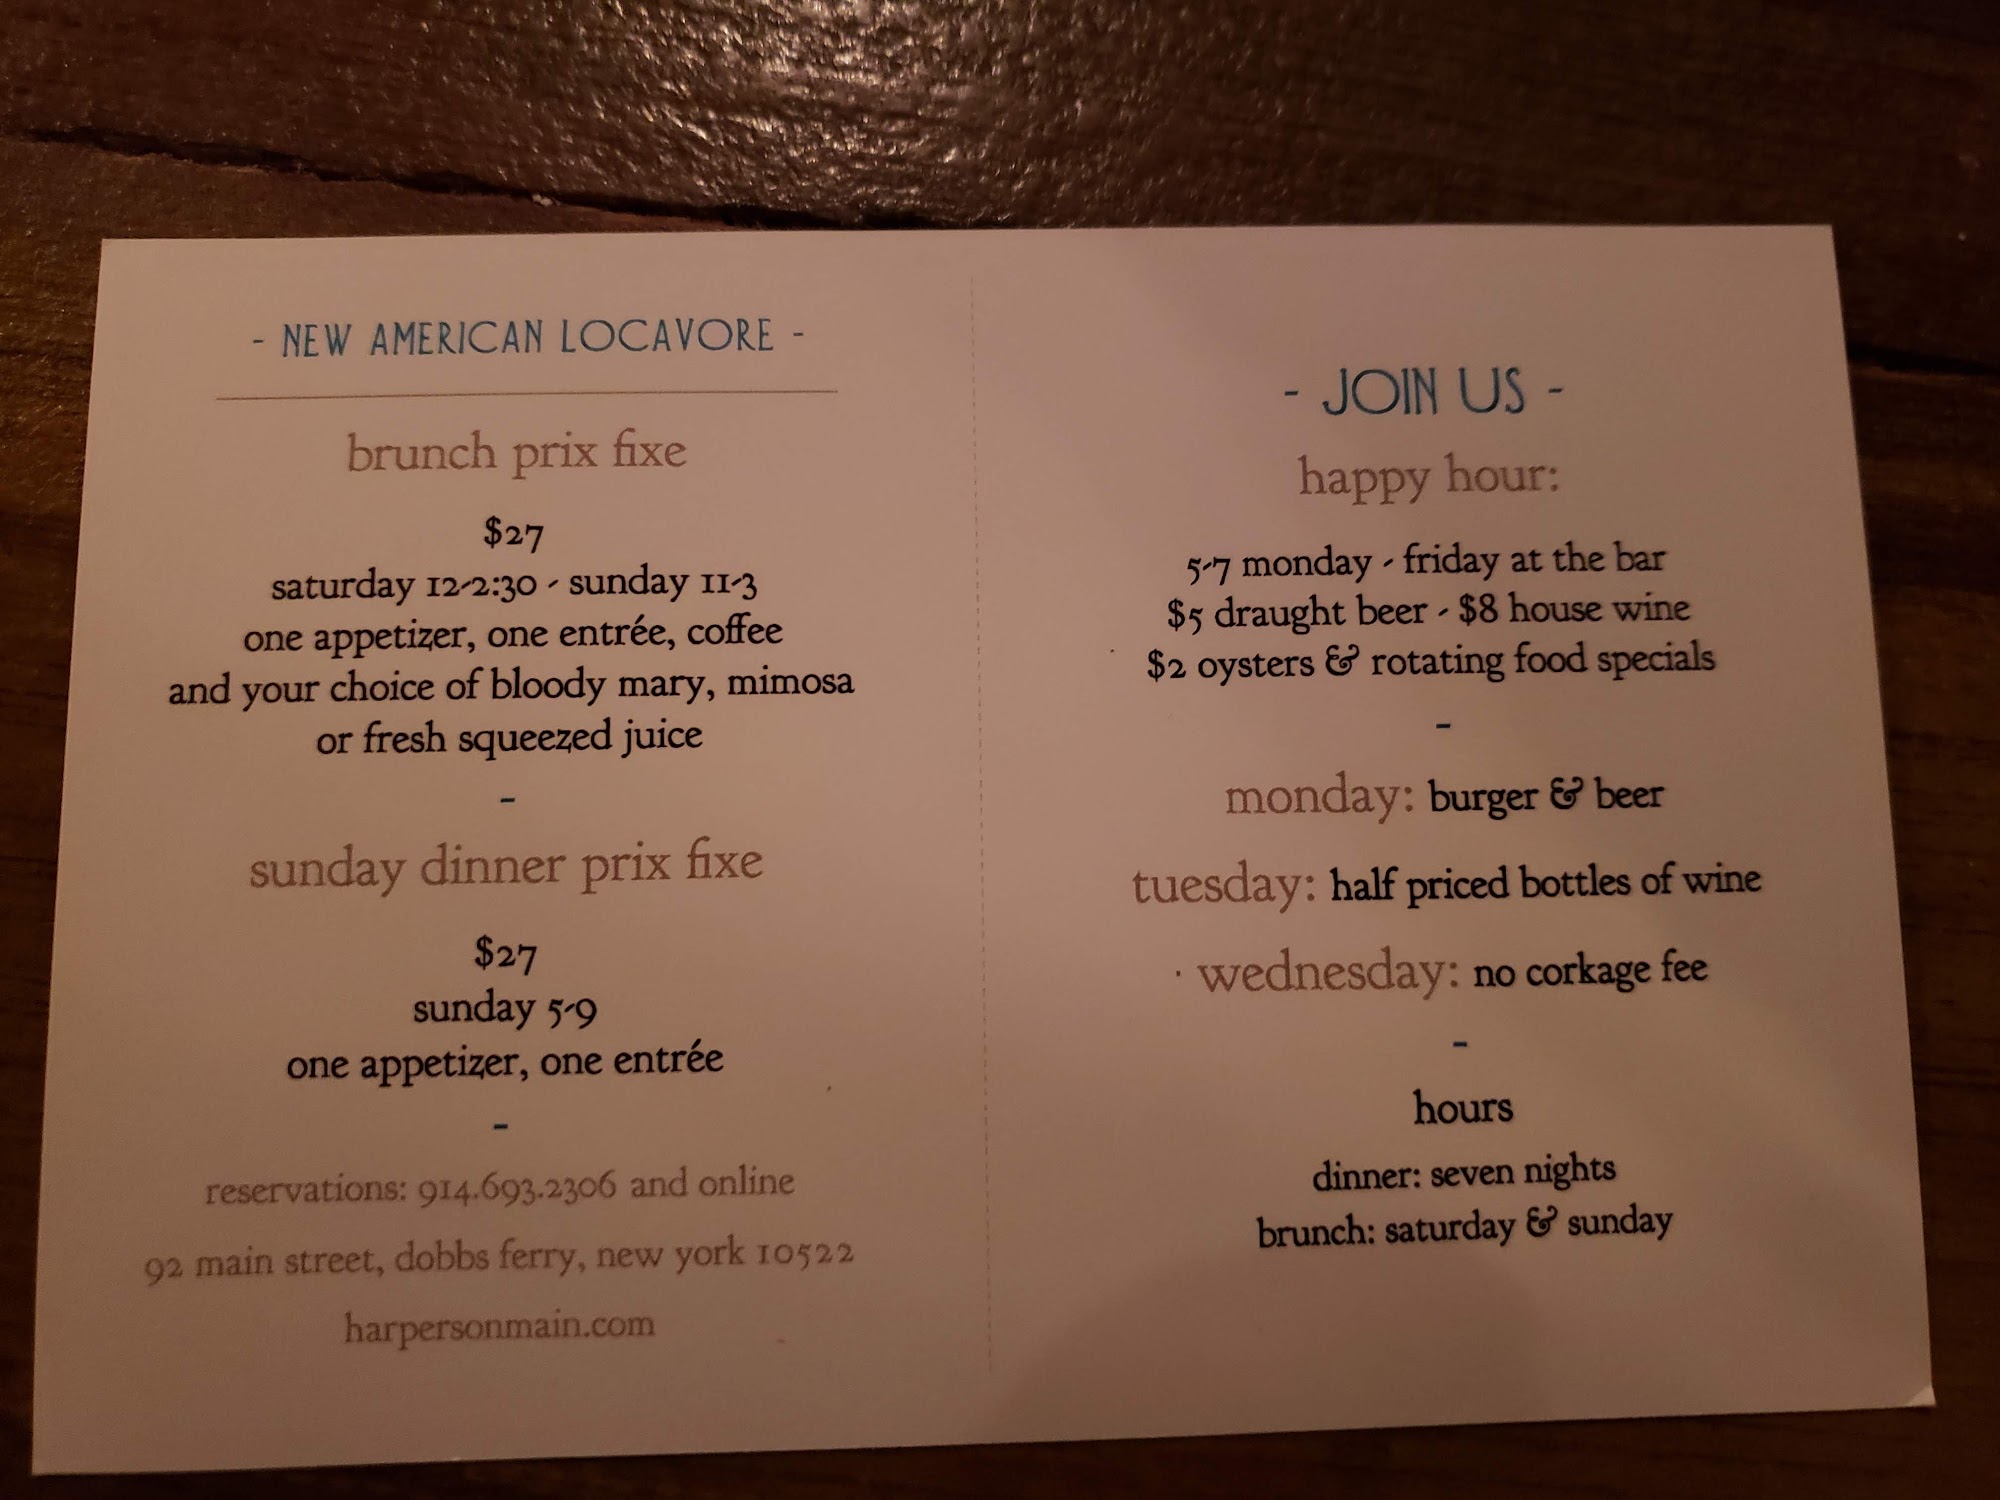 - NEW AMERICAN LOCAVORE -
brunch prix fixe
$27
saturday 12-2:30 - sunday 11-3
one appetizer, one entrée, coffee
and your choice of bloody mary, mimosa
or fresh squeezed juice
-
sunday dinner prix fixe
$27
sunday 5-9
one appetizer, one entrée
-
reservations: 914.693.2306 and online
92 main street, dobbs ferry, new york 10522
harpersonmain.com
- JOIN US -
happy hour:
5-7 monday - friday at the bar
$5 draught beer - $8 house wine
$2 oysters & rotating food specials
-
monday: burger & beer
tuesday: half priced bottles of wine
wednesday: no corkage fee
-
hours
dinner: seven nights
brunch: saturday & sunday